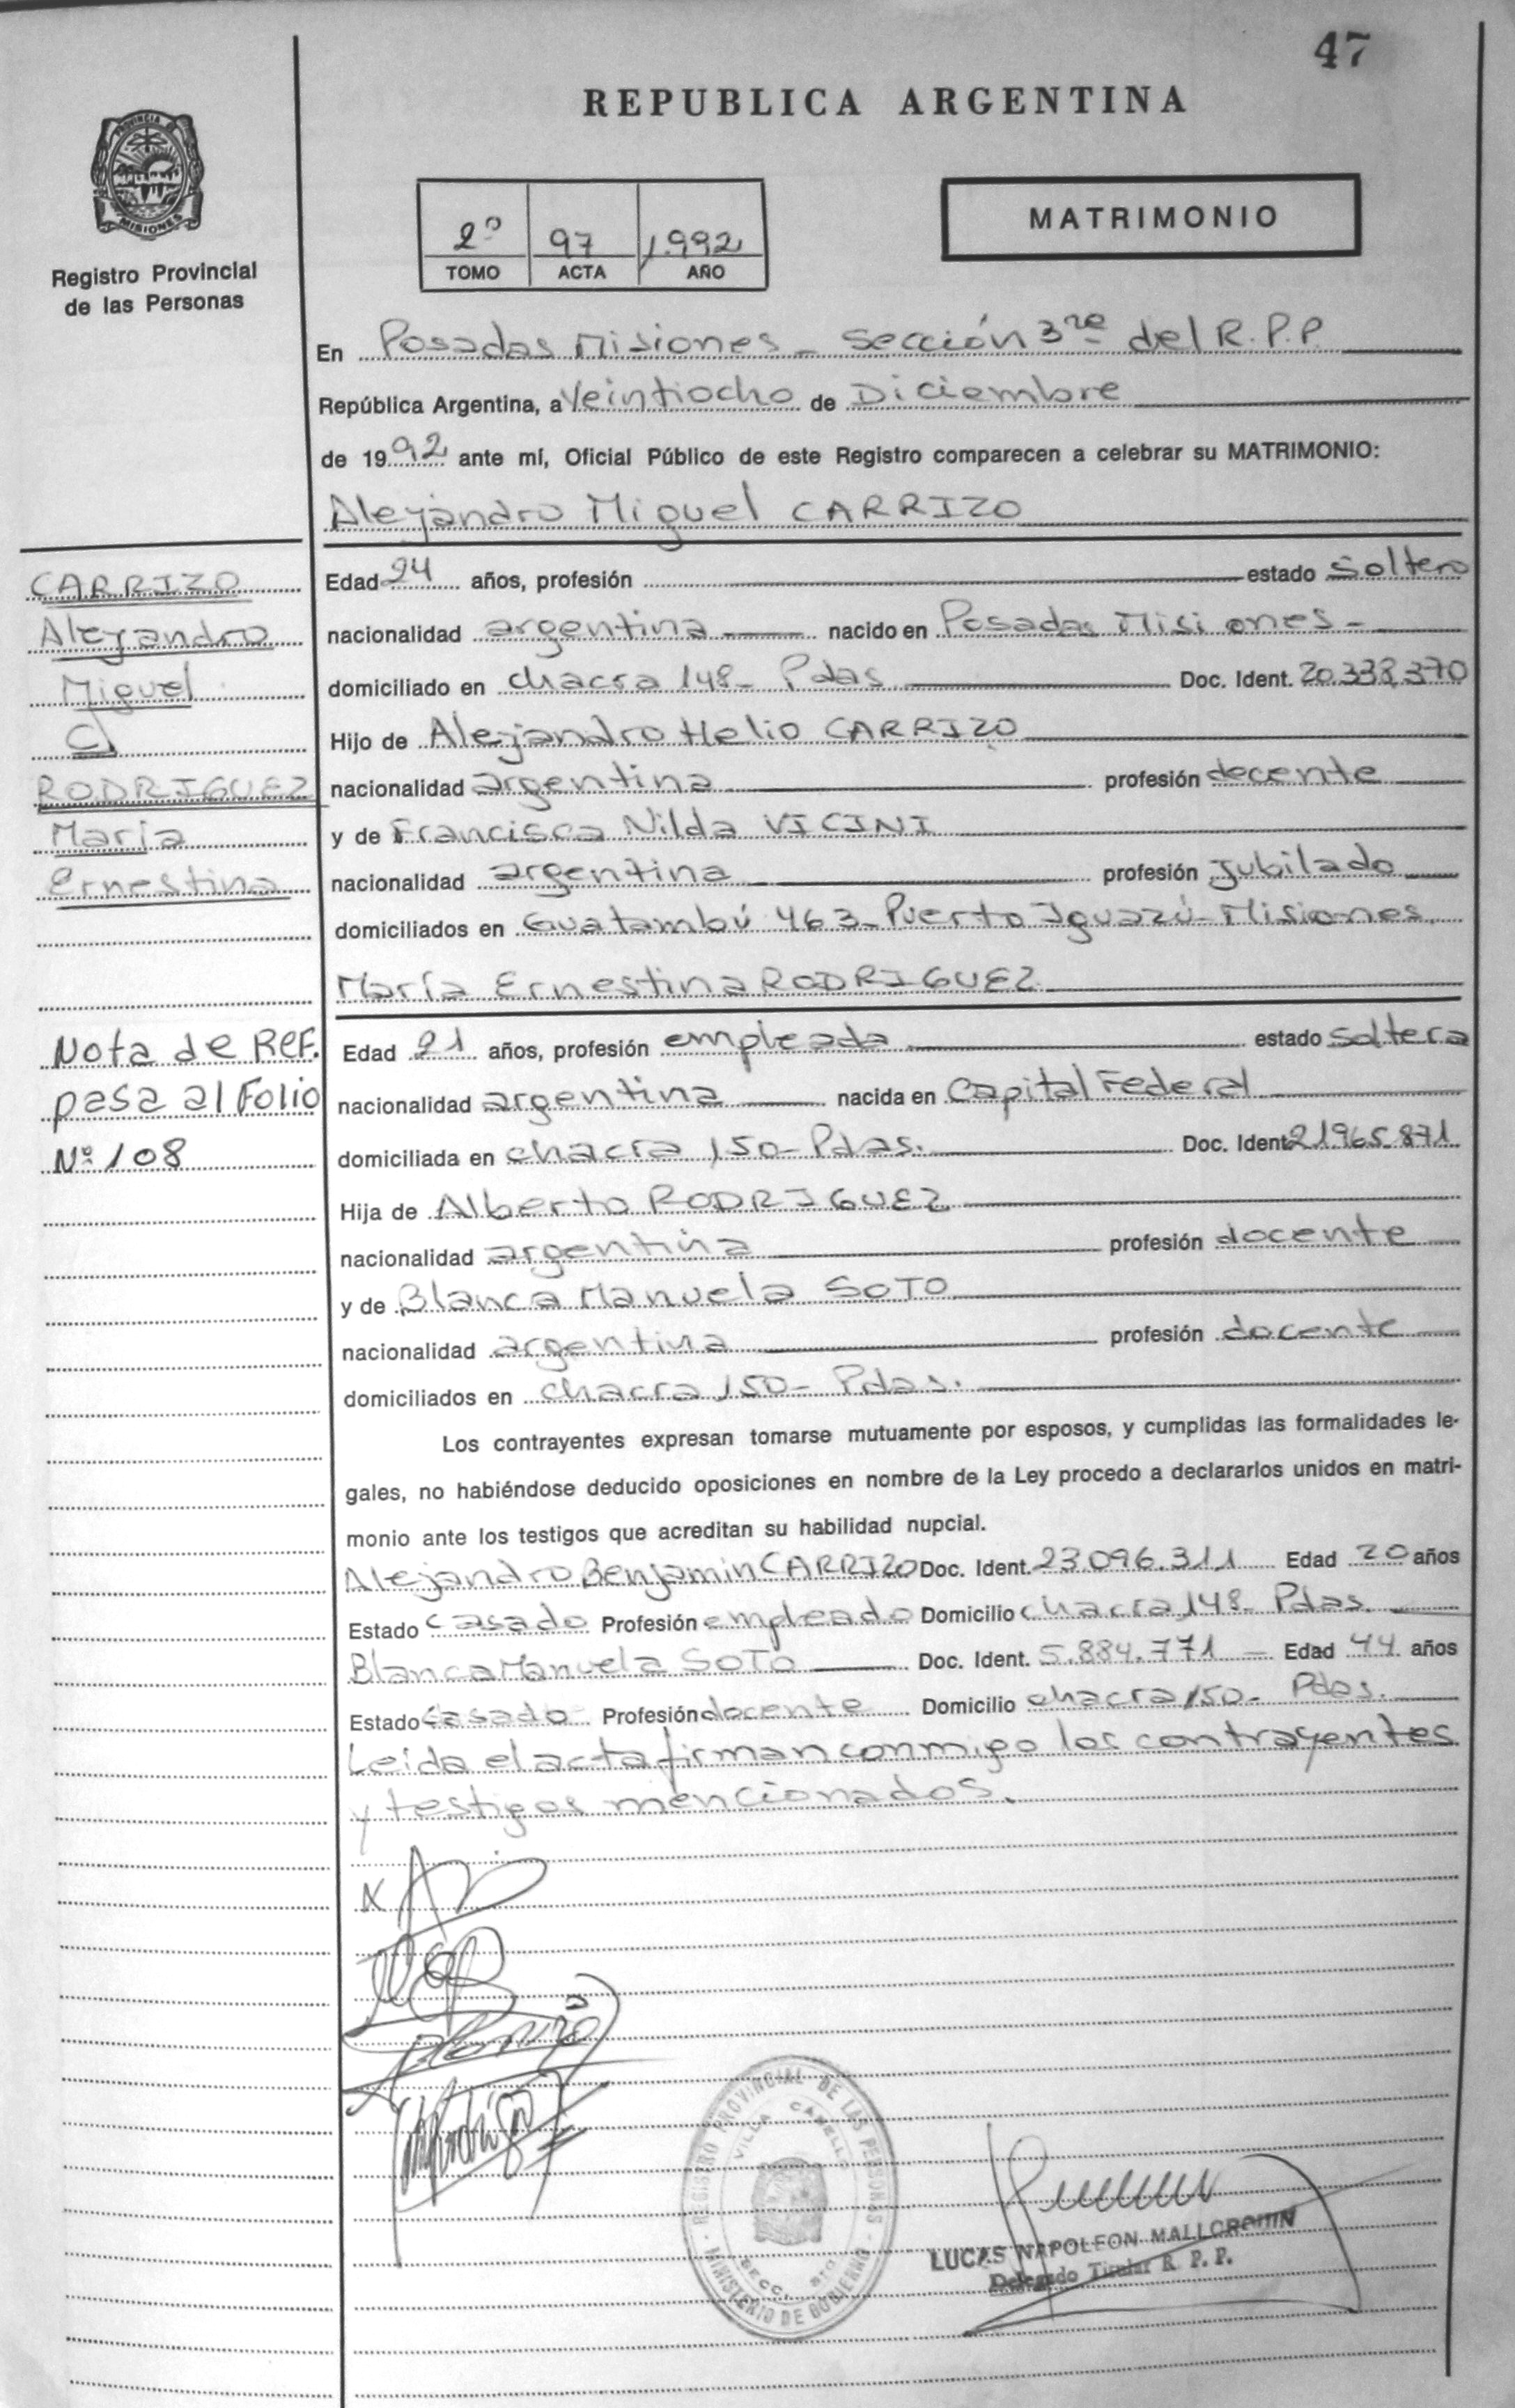 47
REPUBLICA ARGENTINA
PROVINCIA DE
MISIONES
Registro Provincial
de las Personas
2º 97 1.992
TOMO ACTA AÑO
MATRIMONIO
En Posadas Misiones - Sección 3ra del R.P.P.
República Argentina, a Veintiocho de Diciembre
de 1992 ante mí, Oficial Público de este Registro comparecen a celebrar su MATRIMONIO:
Alejandro Miguel CARRIZO
CARRIZO
Alejandro
Miguel
C/
RODRIGUEZ
María
Ernestina
Nota de Ref.
pasa al Folio
Nº 108
Edad 24 años, profesión estado Soltero
nacionalidad argentina nacido en Posadas Misiones -
domiciliado en chacra 148- Pdas Doc. Ident. 20.338.370
Hijo de Alejandro Helio CARRIZO
nacionalidad argentina profesión docente
y de Francisca Nilda VICINI
nacionalidad argentina profesión Jubilado
domiciliados en Guatambú 463- Puerto Iguazú- Misiones
María Ernestina RODRIGUEZ
Edad 21 años, profesión empleada estado Soltera
nacionalidad argentina nacida en Capital Federal
domiciliada en chacra 150- Pdas. Doc. Ident. 21965.871
Hija de Alberto RODRIGUEZ
nacionalidad argentina profesión docente
y de Blanca Manuela SOTO
nacionalidad argentina profesión docente
domiciliados en chacra 150- Pdas.
Los contrayentes expresan tomarse mutuamente por esposos, y cumplidas las formalidades le-
gales, no habiéndose deducido oposiciones en nombre de la Ley procedo a declararlos unidos en matri-
monio ante los testigos que acreditan su habilidad nupcial.
Alejandro Benjamin CARRIZO Doc. Ident. 23.096.311 Edad 20 años
Estado Casado Profesión empleado Domicilio chacra 148- Pdas.
Blanca Manuela SOTO Doc. Ident. 5.884.771 - Edad 44 años
Estado Casado Profesión docente Domicilio chacra 150- Pdas.
Leida el acta firman conmigo los contrayentes
y testigos mencionados.
REGISTRO PROVINCIAL DE LAS PERSONAS
VILLA CABELLO
SECC.
MINISTERIO DE GOBIERNO
LUCAS NAPOLEON MALLORQUIN
Delegado Titular R. P. P.